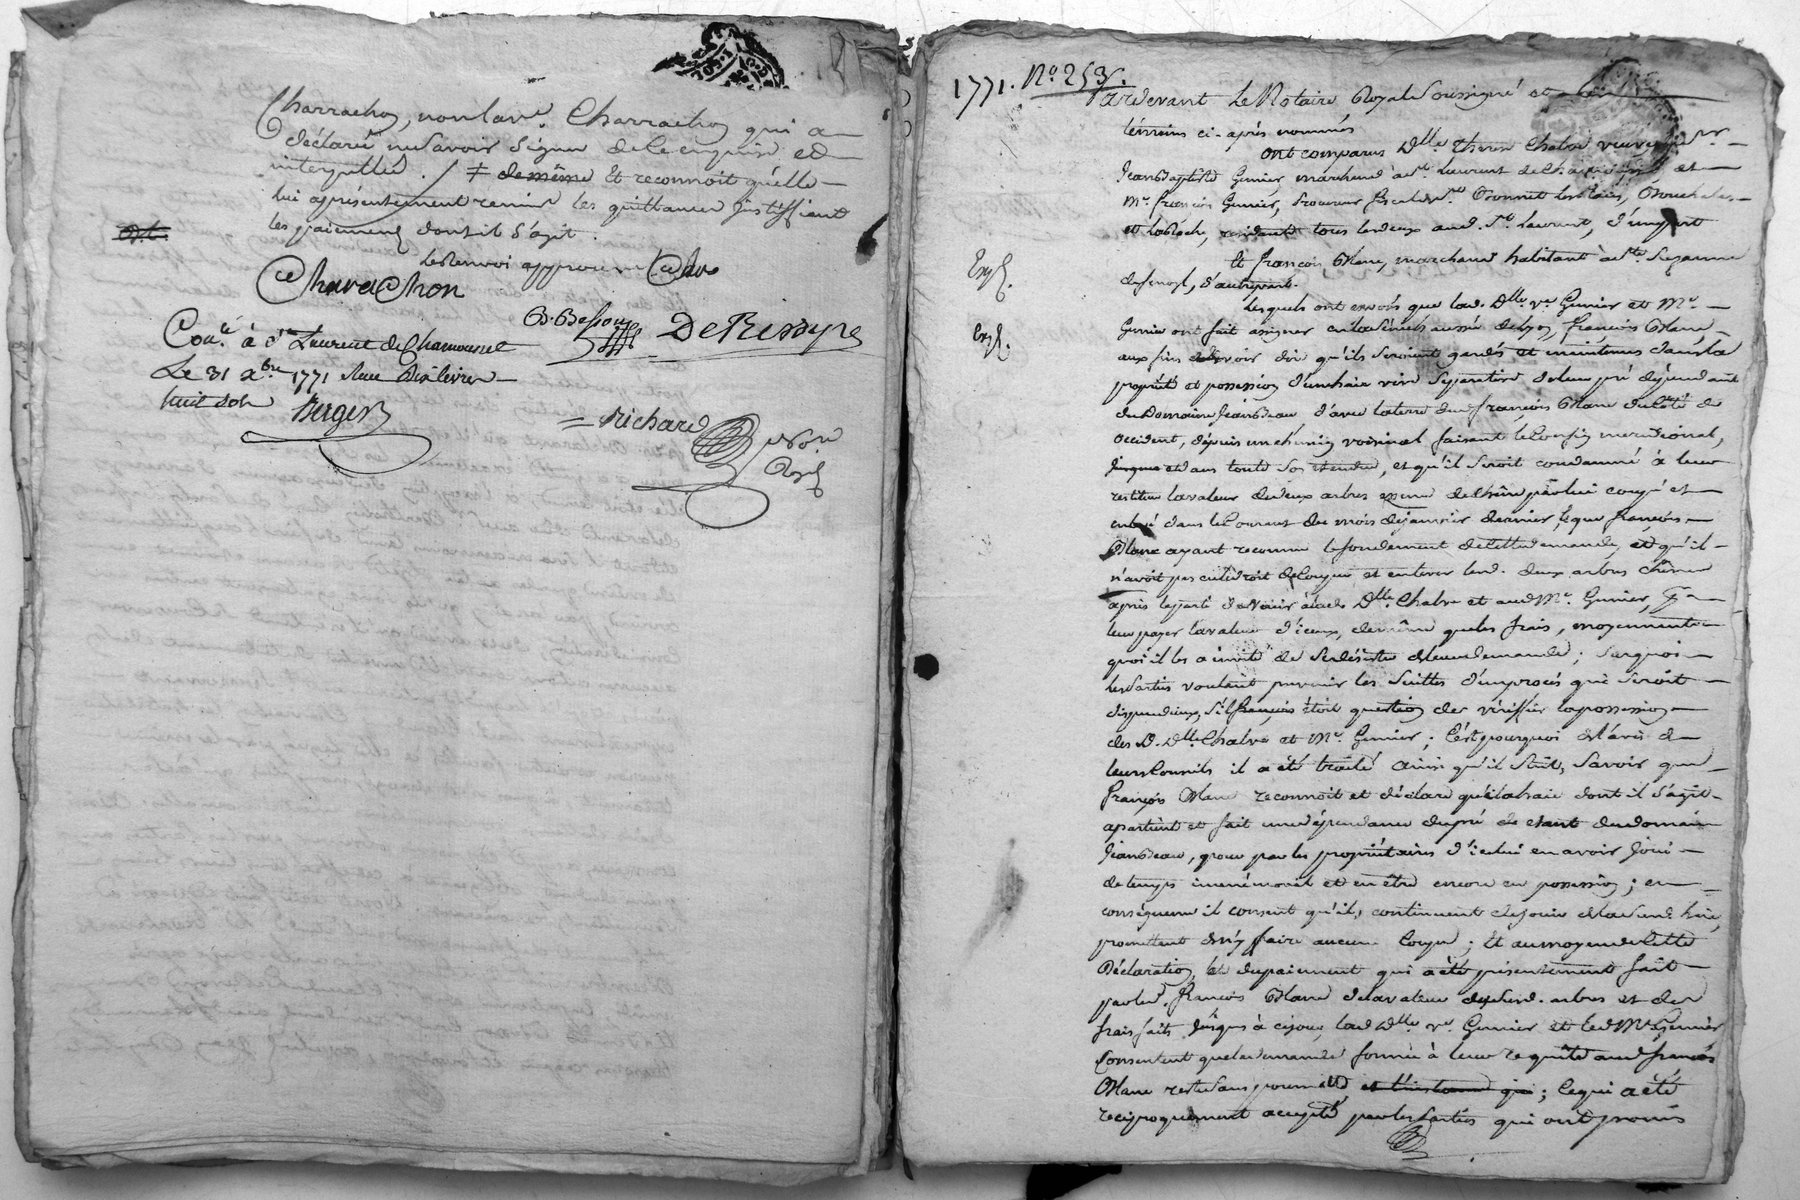 Charrachon, non lad. ve. Charrachon qui a
déclaré ne savoir signer de ce enquise et
interpellée. / ≠ de même et reconnoit qu'elle
lui a présentement remis les quittances justiffient
les paiemens dont il s'agit.
le renvoi approuvé
Charachon
B. Besson De Ressyre
Con.lé à St Laurent de Chamousset
Le 31 xbre 1771 Reçu Dix livres
huit sols
Berger
Richard
Nore
Royal
1771. No. 253.
Pardevant Le Notaire Royal Soussigné et
témoins ci-après nommés
Ont comparus Dlle. Therese Chalve veuve de Sr.
Jean Baptiste Gunier marchand à St. Laurent de Chamousset, et
Me. françois Gunier, Procureur fiscal de
et la Roche, résidents tous les deux aud. St. Laurent, d'une part
Et françois Blanc, marchand habitant à Ste.
d'autre part.
Exp.
Lesquels ont exposés que lad. Dlle. ve. Gunier et Me.
Exp.
Gunier ont fait assigner en la Sénéchaussée de Lyon, françois Blanc
aux fins de voir dire qu'ils seroient gardés et maintenus dans la
propriété et possession d'une haie vive séparative de leur pré dépendant
du Domaine Jeandeau d'avec la terre dud. françois Blanc du Côté de
occident, depuis un chemin voisinal faisant le Confin méridional,
jusques et dans toute son étendue, et qu'il seroit condamné à leur
restituer la valeur de deux arbres essence de chêne par lui coupé et
enlevé dans le Courant du mois de janvier dernier, le que françois
Blanc ayant reconnu le fondement de cette demande, et qu'il
n'avoit pas eu le droit de Couper et enlever lesd. deux arbres chêne
a pris le parti de venir à lad. Dlle. Chalve et aud. Me. Gunier, pr
leur payer la valeur d'iceux, de même que les frais, moyennant
quoi il les a invité de se désister de leur demande; sur quoi
les Parties voulant prévenir les Suittes d'un procès qui seroit
dispendieux, s'il étoit question de vériffier la possession
des D. Dlle. Chalve et Me. Gunier; C'est pourquoi de l'avis de
leurs Conseils il a été traité ainsi qu'il suit, Savoir que
françois Blanc reconnoit et déclare que la haie dont il s'agit
apartient et fait une dépendance du pré du domaine
Jeandeau, pour par les propriétaires d'icelui en avoir joui
de temps immémorial et en être encore en possession; en
conséquence il consent qu'ils continuent de jouir de lad. haie,
promettant de n'y faire aucune Coupe; Et au moyen de cette
Déclaration, et du paiement qui a été présentement fait
par led. françois Blanc de la valeur desd. arbres et des
frais faits jusques à ce jour, lad. Dlle. ve. Gunier et led. Me. Gunier
Consentent que la demande formée à leur requête aud. françois
Blanc reste sans poursuitte; Ce qui a été
reciproquement accepté par les Parties qui ont promis